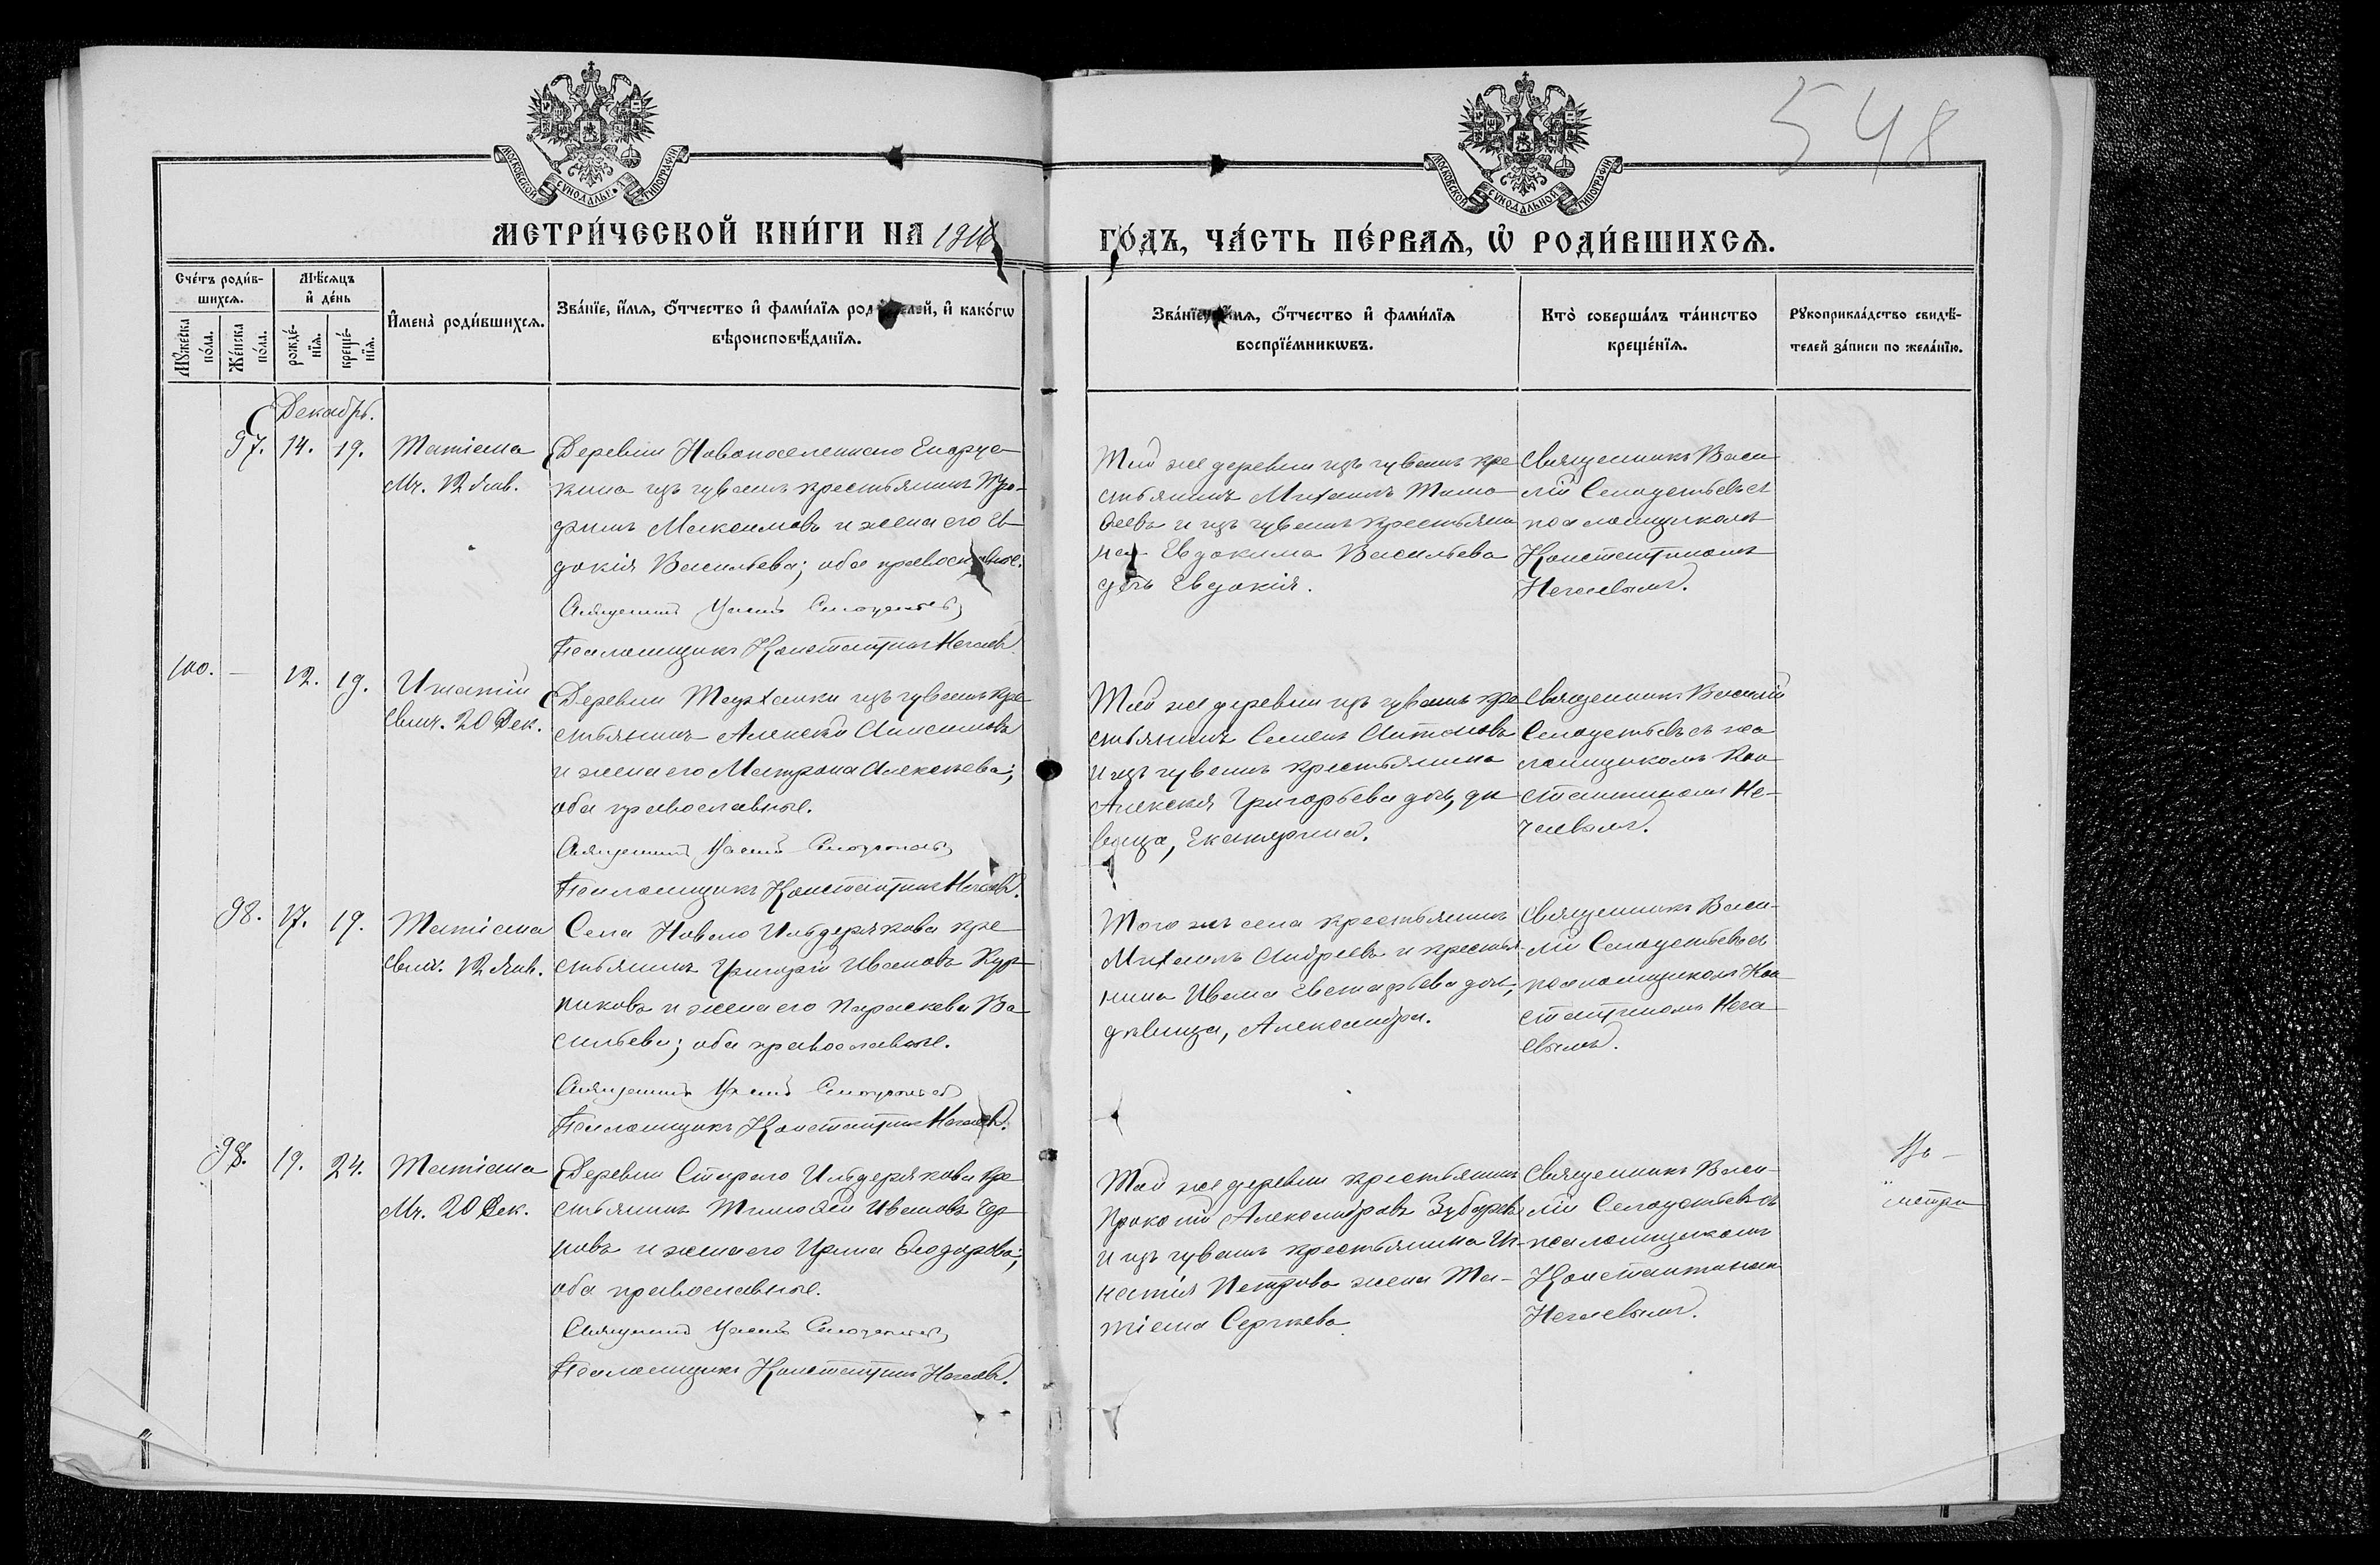 548
МОСКОВСКОЙ СΥНОДАЛЬНОЙ ТИПОГРАФІИ
МОСКОВСКОЙ СΥНОДАЛЬНОЙ ТИПОГРАФІИ
МЕТРИ́ЧЕСКОЙ КНИ́ГИ НА 191
ГО́ДЪ, ЧА́СТЬ ПЕ́РВАЯ, Ѡ҆ РОДИ́ВШИХСЯ.
Сче́тъ роди́в-
шихся.
Мꙋ́жеска по́ла.
Же́нска по́ла.
Мѣ́сяцъ
и҆ де́нь
рожде́-нїя.
креще́-нїя.
И҆мена̀ роди́вшихся.
Зва́нїе, и҆́мя, ѻ҆́тчество и҆ фами́лїя роди́телей, и҆ како́гѡ
вѣроисповѣ́данїя.
Зва́нїе, и҆́мя, ѻ҆́тчество и҆ фами́лїя
воспрїе́мникѡвъ.
Кто̀ соверша́лъ та́инство
креще́нїя.
Рꙋкоприкла́дство свидѣ́-
телей за́писи по жела́нїю.
Декабрь.
97. 14. 19.
Татіана
Мч. 12 Янв.
Деревни Новопоселеннаго
кина изъ чувашъ крестьянинъ Тро-
фимъ Максимовъ и жена его Ев-
докія Васильева; оба православные.
Священникъ
Псаломщикъ Константинъ Нечаевъ.
Той же деревни изъ чувашъ кре-
стьянинъ Михаилъ Тимо-
ѳеевъ и изъ чувашъ крестьяни-
на Евдокима Васильева
дочь Евдокія.
Священникъ Васи-
лій съ
псаломщикомъ
Константиномъ
Нечаевымъ.
100. — 12. 19.
Игнатій
Свмч. 20 Дек.
Деревни изъ чувашъ кре-
стьянинъ Алексѣй Анисимовъ
и жена его Матрона Алексѣева;
оба православные.
Священникъ
Псаломщикъ Константинъ Нечаевъ.
Той же деревни изъ чувашъ кре-
стьянинъ Семенъ Антоновъ
и изъ чувашъ крестьянина
Алексѣя Григорьева дочь, дѣ-
вица, Екатерина.
Священникъ Василій
съ пса-
ломщикомъ Кон-
стантиномъ Не-
чаевымъ.
98. 17. 19.
Татіана
Свмч. 12 Янв.
Села Новаго Ильдерякова кре-
стьянинъ Григорій Ивановъ Кур-
никовъ и жена его Параскева Ва-
сильева; оба православные.
Священникъ
Псаломщикъ Константинъ Нечаевъ.
Того же села крестьянинъ
Михаилъ Андреевъ и крестья-
нина Ивана Евстафьева дочь,
дѣвица, Александра.
Священникъ Васи-
лій съ
псаломщикомъ Кон-
стантиномъ Неча-
евымъ.
98. 19. 24.
Татіана
Мч. 20 Дек.
Деревни Стараго Ильдерякова кре-
стьянинъ Тимоѳей Ивановъ Чер-
новъ и жена его Ирина Ѳеодорова;
оба православные.
Священникъ
Псаломщикъ Константинъ Нечаевъ.
Той же деревни крестьянинъ
Прокопій Александровъ Зубаревъ
и изъ чувашъ крестьянина Иг-
натія Петрова жена Та-
тіана Сергѣева.
Священникъ Васи-
лій съ
псаломщикомъ
Константиномъ
Нечаевымъ.